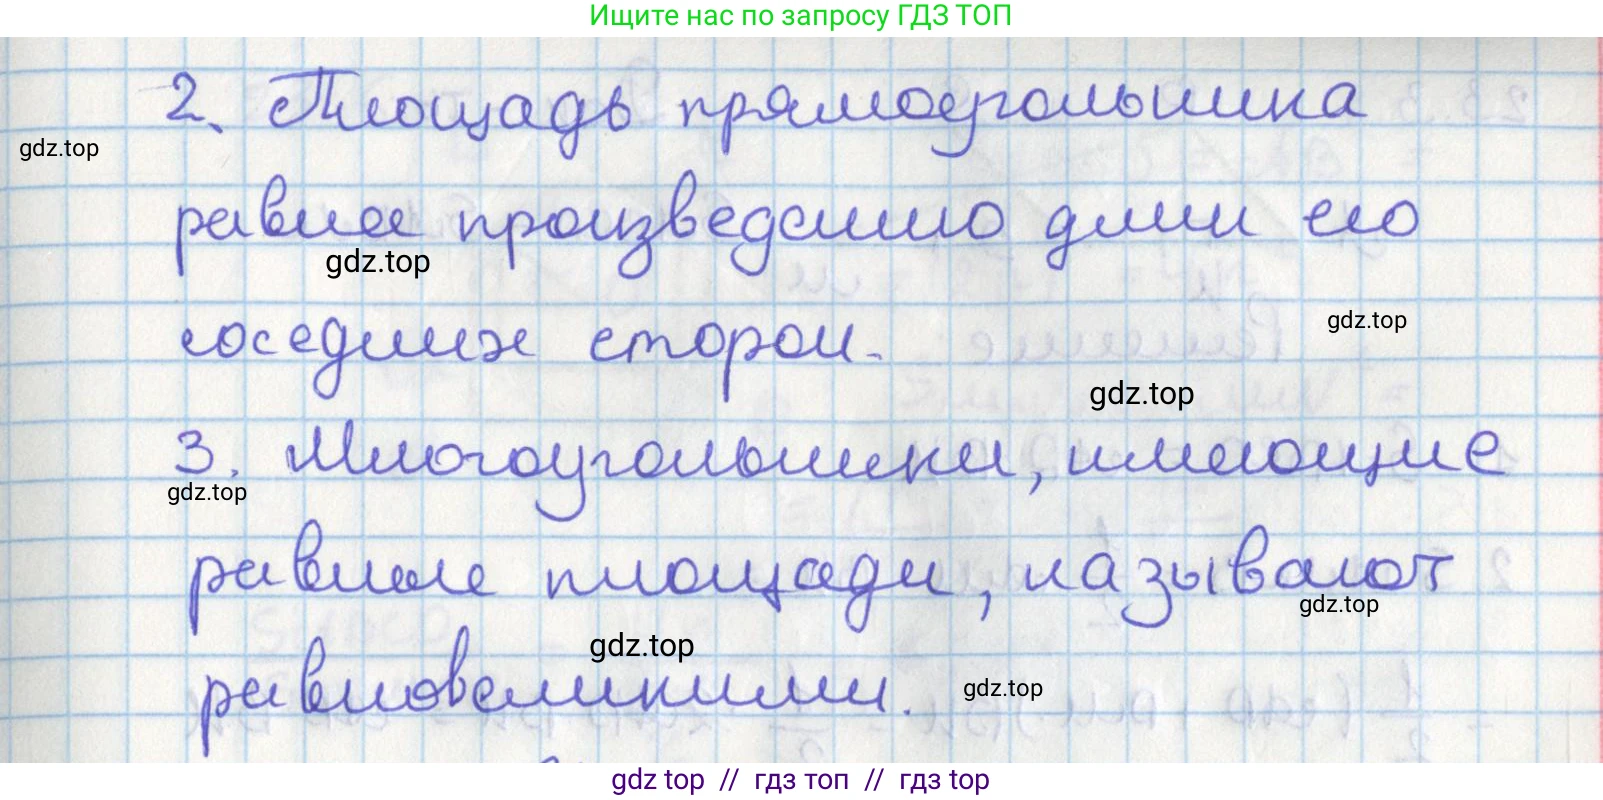 Ищите нас по запросу ГДЗ ТОП
2. Площадь прямоугольника
gdz.top
равна произведению длин его
gdz.top
соседних сторон.
gdz.top
gdz.top
3. Многоугольники, имеющие
gdz.top
равные площади, называют
gdz.top
gdz.top
равновеликими.
gdz.top
gdz top // гдз топ // гдз top